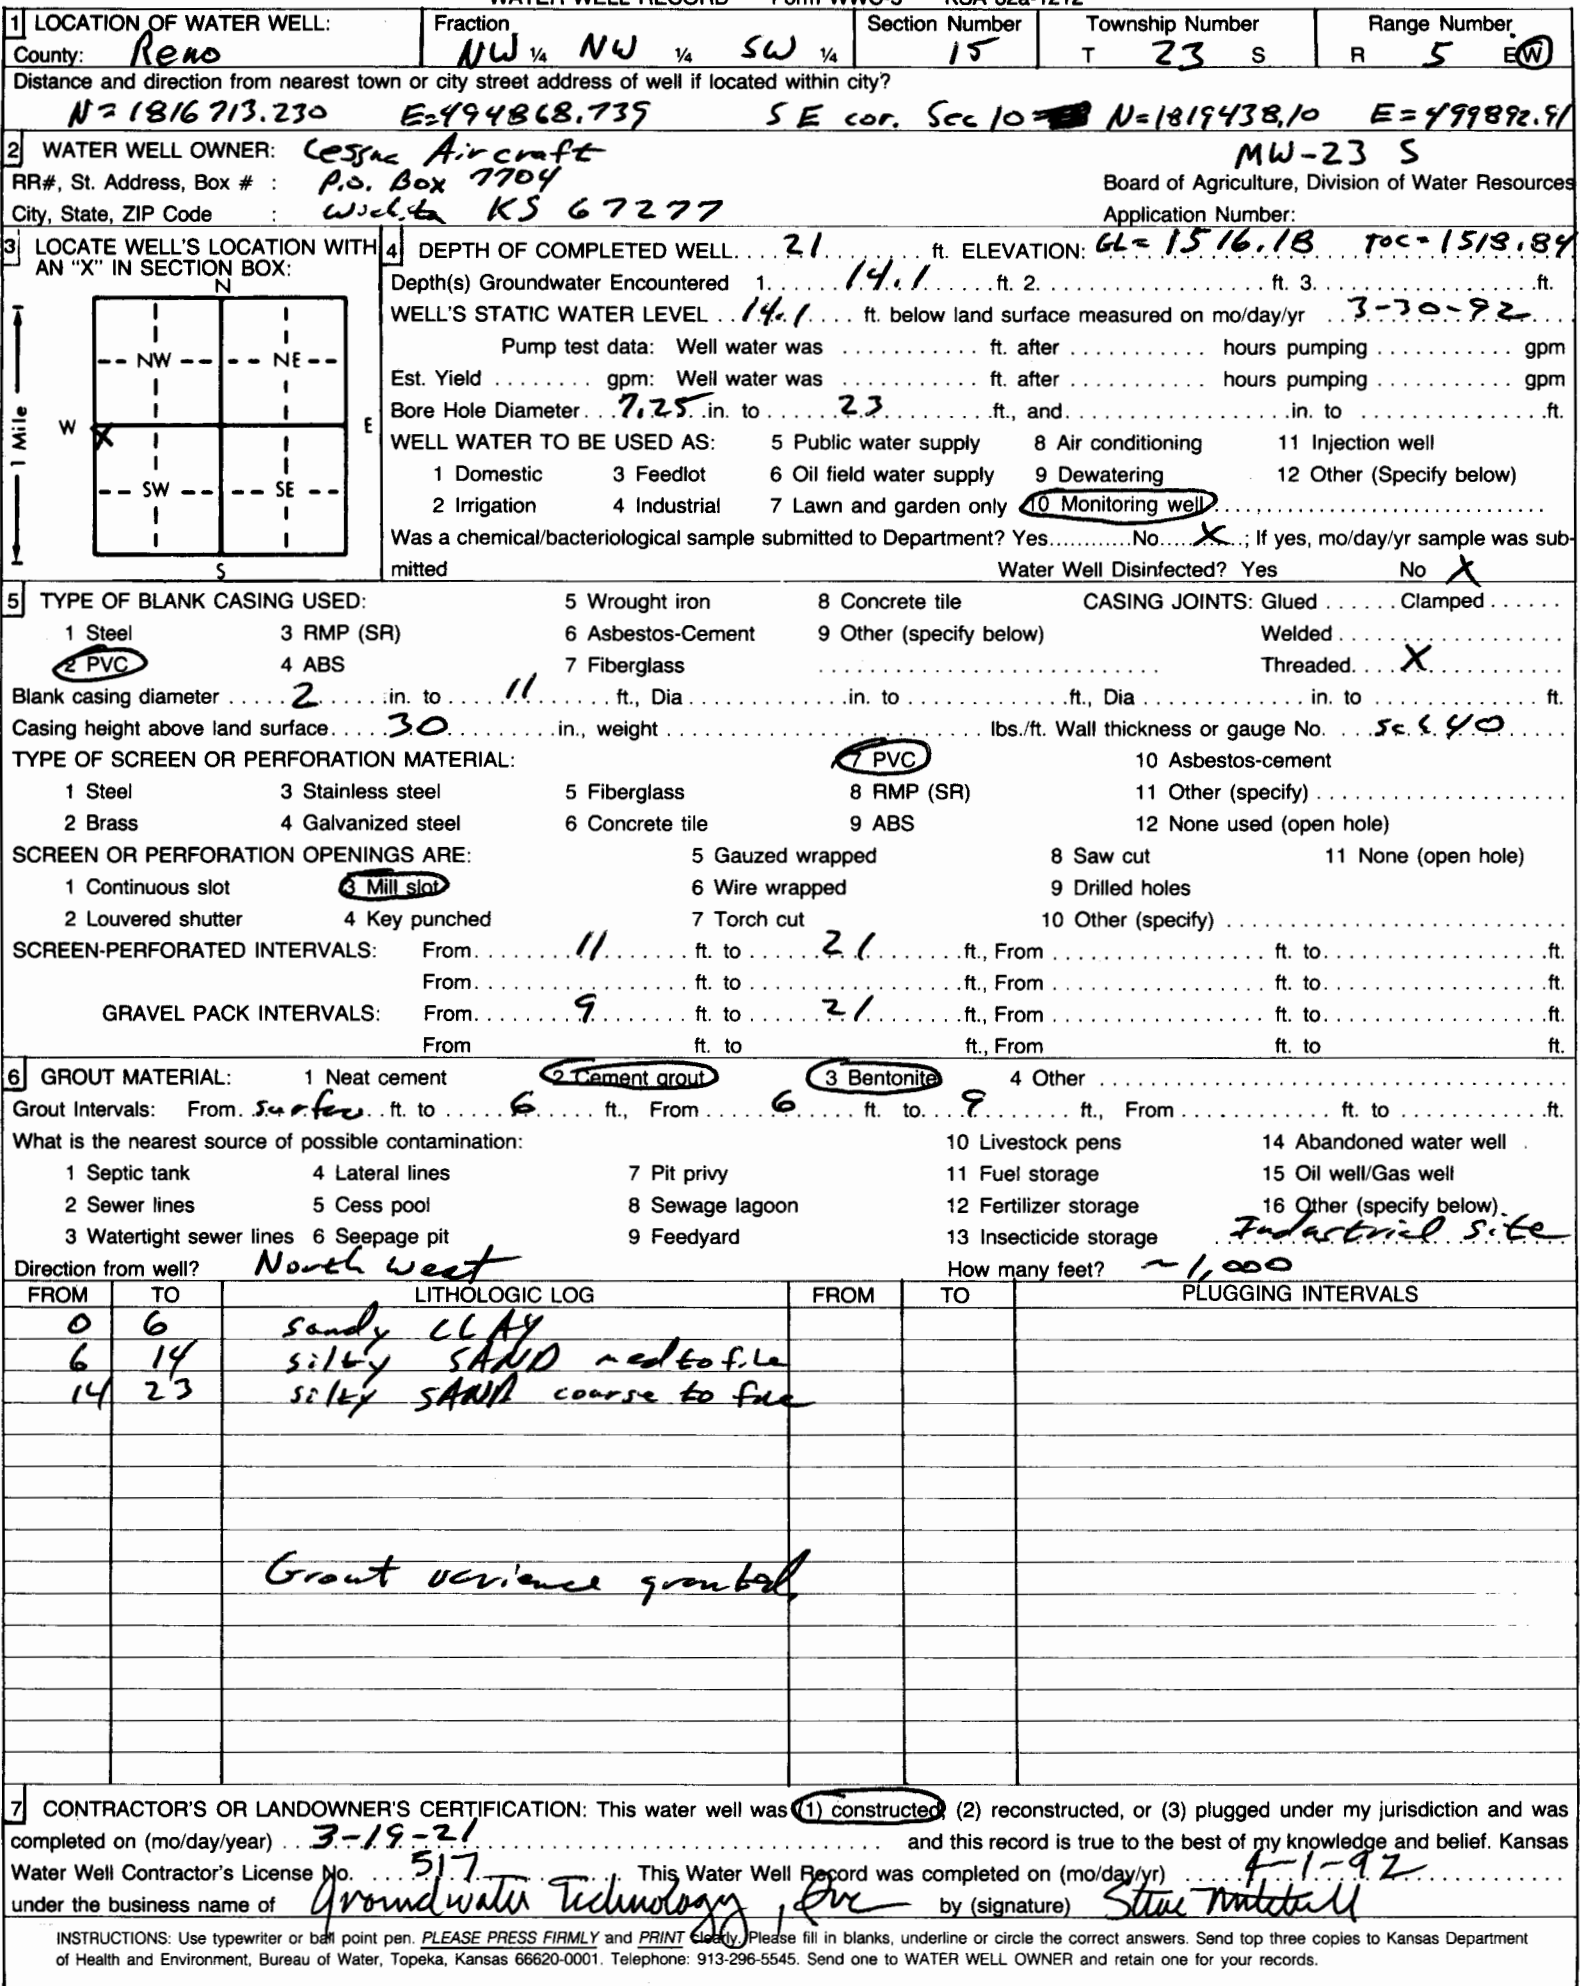 WATER WELL RECORD Form WWC-5 KSA 82a-1212
1 LOCATION OF WATER WELL: Fraction Section Number Township Number Range Number
County: Reno NW ¼ NW ¼ SW ¼ 15 T 23 S R 5 E(W)
Distance and direction from nearest town or city street address of well if located within city?
N=1816713.230 E=494868.739 SE cor. Sec 10 N=1819438.10 E=499892.91
2 WATER WELL OWNER: Cessna Aircraft MW-23 S
RR#, St. Address, Box # : P.O. Box 7704 Board of Agriculture, Division of Water Resources
City, State, ZIP Code : Wichita KS 67277 Application Number:
3 LOCATE WELL'S LOCATION WITH AN "X" IN SECTION BOX:
N
NW NE
W X E
SW SE
S
1 Mile
4 DEPTH OF COMPLETED WELL.... 21 ft. ELEVATION: GL= 1516.18 TOC= 1518.84
Depth(s) Groundwater Encountered 1. 14.1 ft. 2. ft. 3. ft.
WELL'S STATIC WATER LEVEL .. 14.1 .... ft. below land surface measured on mo/day/yr 3-30-92
Pump test data: Well water was ft. after hours pumping gpm
Est. Yield gpm: Well water was ft. after hours pumping gpm
Bore Hole Diameter 7.25 in. to 23 ft., and in. to ft.
WELL WATER TO BE USED AS: 5 Public water supply 8 Air conditioning 11 Injection well
1 Domestic 3 Feedlot 6 Oil field water supply 9 Dewatering 12 Other (Specify below)
2 Irrigation 4 Industrial 7 Lawn and garden only 10 Monitoring well
Was a chemical/bacteriological sample submitted to Department? Yes No X ; If yes, mo/day/yr sample was sub-
mitted Water Well Disinfected? Yes No X
5 TYPE OF BLANK CASING USED: 5 Wrought iron 8 Concrete tile CASING JOINTS: Glued Clamped
1 Steel 3 RMP (SR) 6 Asbestos-Cement 9 Other (specify below) Welded
2 PVC 4 ABS 7 Fiberglass Threaded X
Blank casing diameter 2 in. to 11 ft., Dia in. to ft., Dia in. to ft.
Casing height above land surface 30 in., weight lbs./ft. Wall thickness or gauge No. Sch. 40
TYPE OF SCREEN OR PERFORATION MATERIAL: 7 PVC 10 Asbestos-cement
1 Steel 3 Stainless steel 5 Fiberglass 8 RMP (SR) 11 Other (specify)
2 Brass 4 Galvanized steel 6 Concrete tile 9 ABS 12 None used (open hole)
SCREEN OR PERFORATION OPENINGS ARE: 5 Gauzed wrapped 8 Saw cut 11 None (open hole)
1 Continuous slot 3 Mill slot 6 Wire wrapped 9 Drilled holes
2 Louvered shutter 4 Key punched 7 Torch cut 10 Other (specify)
SCREEN-PERFORATED INTERVALS: From 11 ft. to 21 ft., From ft. to ft.
From ft. to ft., From ft. to ft.
GRAVEL PACK INTERVALS: From 9 ft. to 21 ft., From ft. to ft.
From ft. to ft., From ft. to ft.
6 GROUT MATERIAL: 1 Neat cement 2 Cement grout 3 Bentonite 4 Other
Grout Intervals: From surface ft. to 6 ft., From 6 ft. to 9 ft., From ft. to ft.
What is the nearest source of possible contamination: 10 Livestock pens 14 Abandoned water well
1 Septic tank 4 Lateral lines 7 Pit privy 11 Fuel storage 15 Oil well/Gas well
2 Sewer lines 5 Cess pool 8 Sewage lagoon 12 Fertilizer storage 16 Other (specify below)
3 Watertight sewer lines 6 Seepage pit 9 Feedyard 13 Insecticide storage Industrial site
Direction from well? North West How many feet? ~1,000
FROM TO LITHOLOGIC LOG FROM TO PLUGGING INTERVALS
0 6 sandy CLAY
6 14 silty SAND med to fine
14 23 silty SAND course to fine
Grout varience granted.
7 CONTRACTOR'S OR LANDOWNER'S CERTIFICATION: This water well was (1) constructed, (2) reconstructed, or (3) plugged under my jurisdiction and was
completed on (mo/day/year) 3-19-21 and this record is true to the best of my knowledge and belief. Kansas
Water Well Contractor's License No. 517 This Water Well Record was completed on (mo/day/yr) 4-1-92
under the business name of Groundwater Technology, Inc by (signature) Steve Mitchell
INSTRUCTIONS: Use typewriter or ball point pen. PLEASE PRESS FIRMLY and PRINT clearly. Please fill in blanks, underline or circle the correct answers. Send top three copies to Kansas Department
of Health and Environment, Bureau of Water, Topeka, Kansas 66620-0001. Telephone: 913-296-5545. Send one to WATER WELL OWNER and retain one for your records.